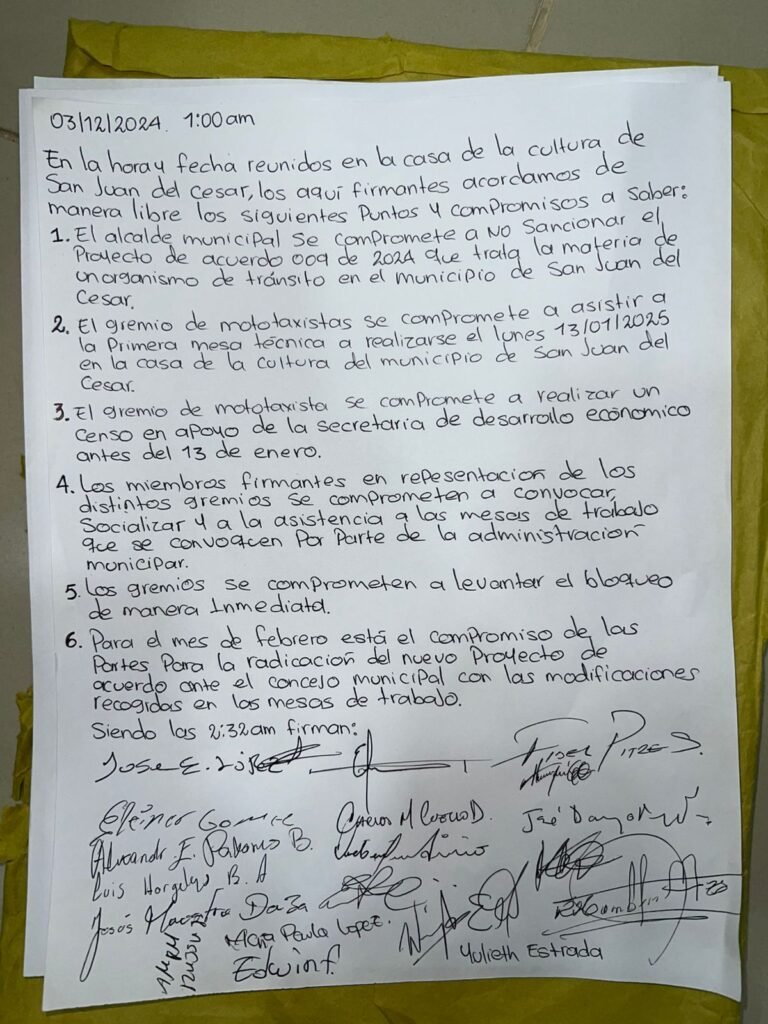 03/12/2024. 1:00am
En la hora y fecha reunidos en la casa de la cultura de
San Juan del Cesar, los aquí firmantes acordamos de
manera libre los siguientes Puntos y compromisos a saber:
1. El alcalde municipal se compromete a NO Sancionar el
Proyecto de acuerdo 009 de 2024 que trata la materia de
un organismo de tránsito en el municipio de San Juan del
Cesar.
2. El gremio de mototaxistas se compromete a asistir a
la Primera mesa técnica a realizarse el lunes 13/01/2025
en la casa de la cultura del municipio de San Juan del
Cesar.
3. El gremio de mototaxista se compromete a realizar un
censo en apoyo de la secretaria de desarrollo económico
antes del 13 de enero.
4. Los miembros firmantes en repesentacion de los
distintos gremios se comprometen a convocar,
Socializar y a la asistencia a las mesas de trabajo
que se convoquen Por Parte de la administracion
municipar.
5. Los gremios se comprometen a levantar el bloqueo
de manera Inmediata.
6. Para el mes de febrero está el compromiso de las
Partes Para la radicación del nuevo Proyecto de
acuerdo ante el concejo municipal con las modificaciones
recogidas en las mesas de trabajo.
Siendo las 2:32am firman:
Jose E.
Carlos M
José
Luis
B. A
Josós
Daza
Maria Paula Lopez.
Edwin f.
Yulieth Estrada